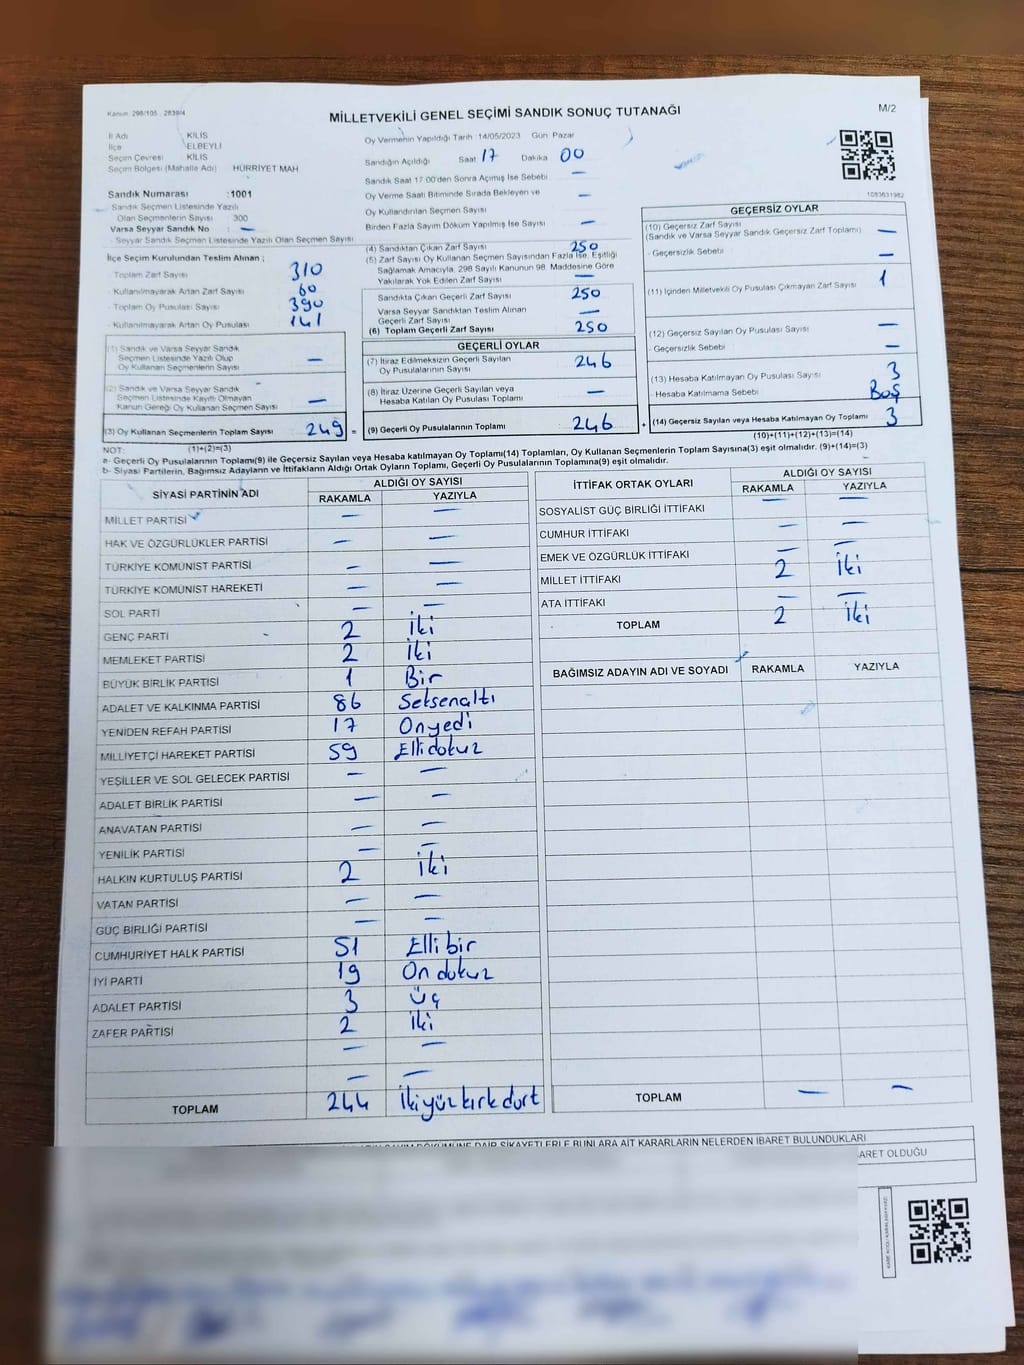 Kanun: 298/105 , 2839/4
MİLLETVEKİLİ GENEL SEÇİMİ SANDIK SONUÇ TUTANAĞI
M/2
İl Adı KİLİS
İlçe ELBEYLİ
Seçim Çevresi KİLİS
Seçim Bölgesi (Mahalle Adı) HÜRRİYET MAH
Sandık Numarası : 1001
Sandık Seçmen Listesinde Yazılı
Olan Seçmenlerin Sayısı 300
Varsa Seyyar Sandık No : —
- Seyyar Sandık Seçmen Listesinde Yazılı Olan Seçmen Sayısı
İlçe Seçim Kurulundan Teslim Alınan ;
- Toplam Zarf Sayısı 310
- Kullanılmayarak Artan Zarf Sayısı 60
- Toplam Oy Pusulası Sayısı 390
- Kullanılmayarak Artan Oy Pusulası 141
(1) Sandık ve Varsa Seyyar Sandık
Seçmen Listesinde Yazılı Olup
Oy Kullanan Seçmenlerin Sayısı —
(2) Sandık ve Varsa Seyyar Sandık
Seçmen Listesinde Kayıtlı Olmayan
Kanun Gereği Oy Kullanan Seçmen Sayısı —
(3) Oy Kullanan Seçmenlerin Toplam Sayısı 249 =
Oy Vermenin Yapıldığı Tarih :14/05/2023 Gün: Pazar
Sandığın Açıldığı Saat 17 Dakika 00
Sandık Saat 17:00'den Sonra Açılmış İse Sebebi —
Oy Verme Saati Bitiminde Sırada Bekleyen ve —
Oy Kullandırılan Seçmen Sayısı
Birden Fazla Sayım Döküm Yapılmış İse Sayısı —
(4) Sandıktan Çıkan Zarf Sayısı 250
(5) Zarf Sayısı Oy Kullanan Seçmen Sayısından Fazla İse, Eşitliği
Sağlamak Amacıyla, 298 Sayılı Kanunun 98. Maddesine Göre
Yakılarak Yok Edilen Zarf Sayısı —
Sandıkta Çıkan Geçerli Zarf Sayısı 250
Varsa Seyyar Sandıktan Teslim Alınan
Geçerli Zarf Sayısı —
(6) Toplam Geçerli Zarf Sayısı 250
GEÇERLİ OYLAR
(7) İtiraz Edilmeksizin Geçerli Sayılan
Oy Pusulalarının Sayısı 246
(8) İtiraz Üzerine Geçerli Sayılan veya
Hesaba Katılan Oy Pusulası Toplamı —
(9) Geçerli Oy Pusulalarının Toplamı 246 +
1083631982
GEÇERSİZ OYLAR
(10) Geçersiz Zarf Sayısı
(Sandık ve Varsa Seyyar Sandık Geçersiz Zarf Toplamı) —
- Geçersizlik Sebebi —
(11) İçinden Milletvekili Oy Pusulası Çıkmayan Zarf Sayısı 1
(12) Geçersiz Sayılan Oy Pusulası Sayısı —
- Geçersizlik Sebebi —
(13) Hesaba Katılmayan Oy Pusulası Sayısı 3
- Hesaba Katılmama Sebebi Boş
(14) Geçersiz Sayılan veya Hesaba Katılmayan Oy Toplamı 3
NOT: (1)+(2)=(3)
(10)+(11)+(12)+(13)=(14)
a- Geçerli Oy Pusulalarının Toplamı(9) ile Geçersiz Sayılan veya Hesaba Katılmayan Oy Toplamı(14) Toplamları, Oy Kullanan Seçmenlerin Toplam Sayısına(3) eşit olmalıdır. (9)+(14)=(3)
b- Siyasi Partilerin, Bağımsız Adayların ve İttifakların Aldığı Ortak Oyların Toplamı, Geçerli Oy Pusulalarının Toplamına(9) eşit olmalıdır.
SİYASİ PARTİNİN ADI ALDIĞI OY SAYISI
RAKAMLA YAZIYLA
MİLLET PARTİSİ — —
HAK VE ÖZGÜRLÜKLER PARTİSİ — —
TÜRKİYE KOMÜNİST PARTİSİ — —
TÜRKİYE KOMÜNİST HAREKETİ — —
SOL PARTİ — —
GENÇ PARTİ 2 İki
MEMLEKET PARTİSİ 2 İki
BÜYÜK BİRLİK PARTİSİ 1 Bir
ADALET VE KALKINMA PARTİSİ 86 Seksenaltı
YENİDEN REFAH PARTİSİ 17 Onyedi
MİLLİYETÇİ HAREKET PARTİSİ 59 Ellidokuz
YEŞİLLER VE SOL GELECEK PARTİSİ — —
ADALET BİRLİK PARTİSİ — —
ANAVATAN PARTİSİ — —
YENİLİK PARTİSİ — —
HALKIN KURTULUŞ PARTİSİ 2 İki
VATAN PARTİSİ — —
GÜÇ BİRLİĞİ PARTİSİ — —
CUMHURİYET HALK PARTİSİ 51 Elli bir
İYİ PARTİ 19 On dokuz
ADALET PARTİSİ 3 Üç
ZAFER PARTİSİ 2 İki
— —
— —
TOPLAM 244 İkiyüz kırk dört
İTTİFAK ORTAK OYLARI ALDIĞI OY SAYISI
RAKAMLA YAZIYLA
SOSYALİST GÜÇ BİRLİĞİ İTTİFAKI — —
CUMHUR İTTİFAKI — —
EMEK VE ÖZGÜRLÜK İTTİFAKI — —
MİLLET İTTİFAKI 2 İki
ATA İTTİFAKI — —
TOPLAM 2 İki
BAĞIMSIZ ADAYIN ADI VE SOYADI RAKAMLA YAZIYLA
TOPLAM — —
SAYIM DÖKÜMÜNE DAİR ŞİKAYETLERLE BUNLARA AİT KARARLARIN NELERDEN İBARET BULUNDUKLARI
OLDUĞU